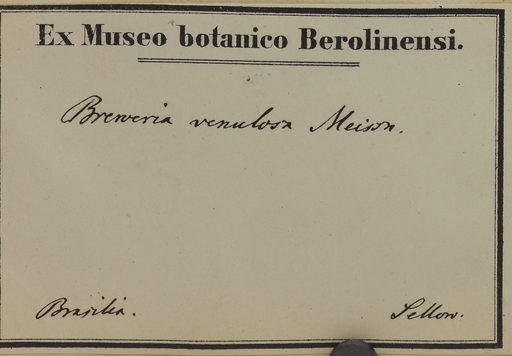 Ex Museo botanico Berolinensi.
Breweria venulosa Meissn.
Brasilia.
Sellow.